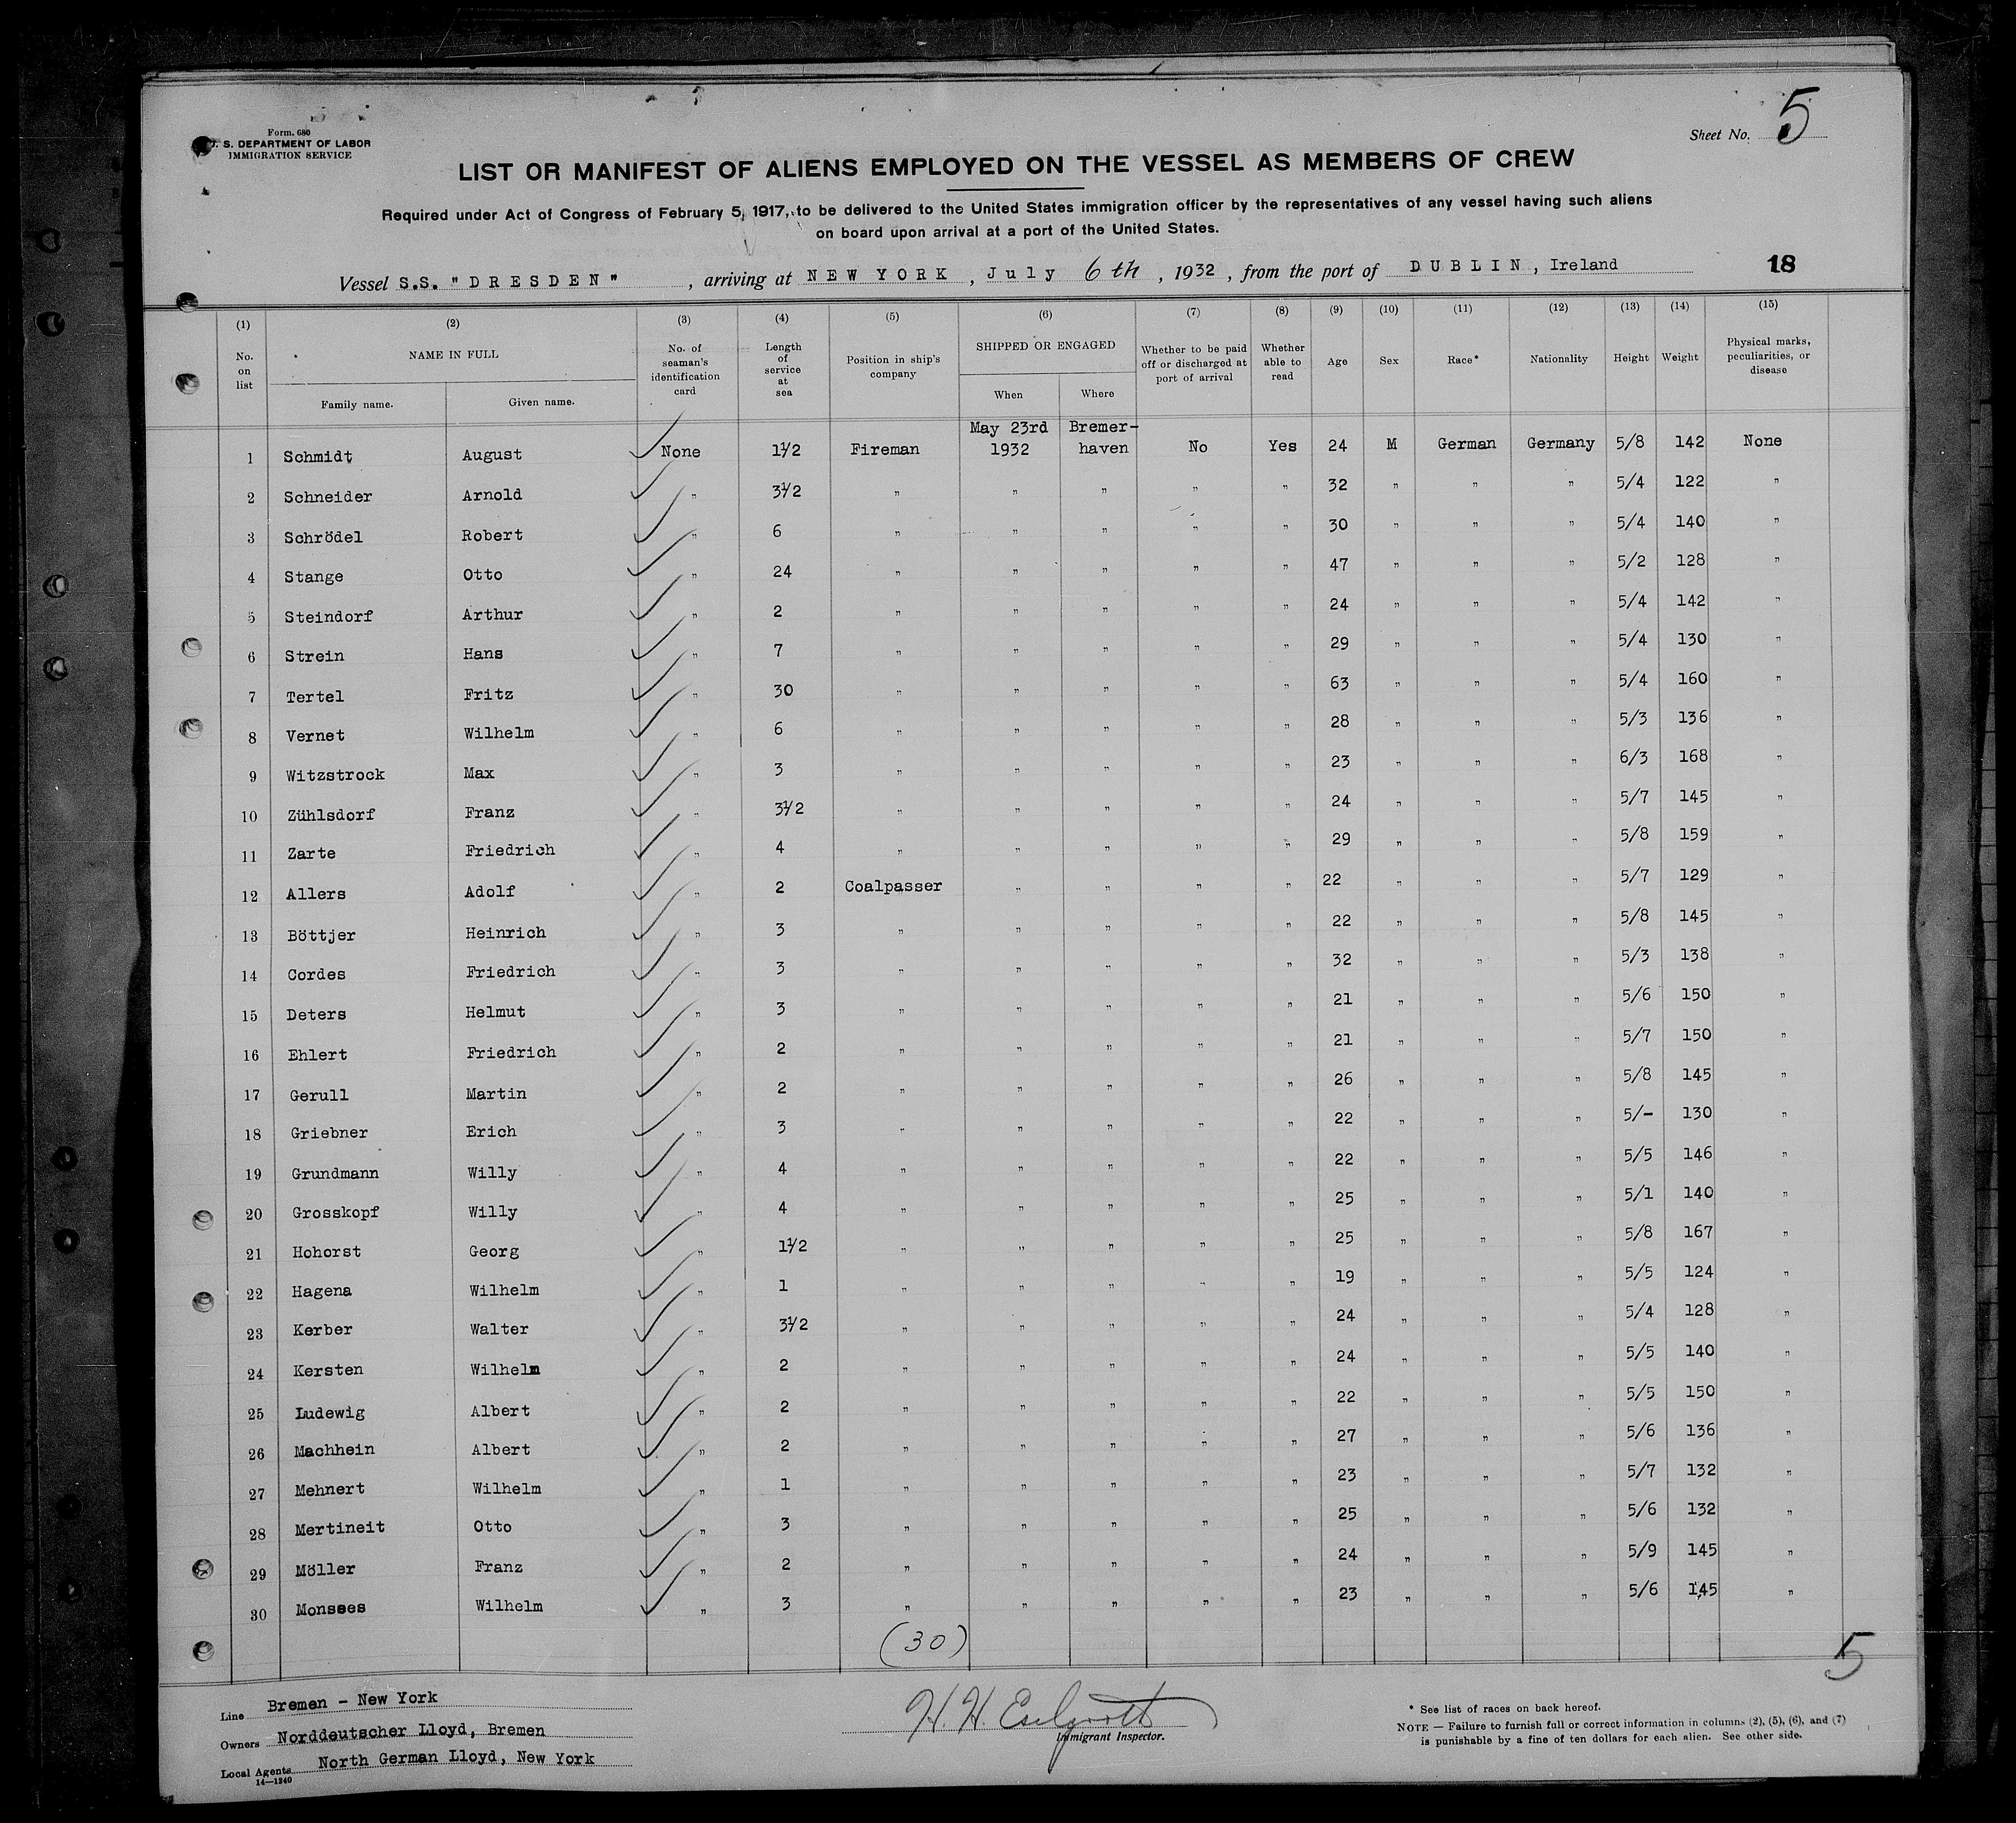 Form. 680
U. S. DEPARTMENT OF LABOR
IMMIGRATION SERVICE
Sheet No. 5
LIST OR MANIFEST OF ALIENS EMPLOYED ON THE VESSEL AS MEMBERS OF CREW
Required under Act of Congress of February 5, 1917, to be delivered to the United States immigration officer by the representatives of any vessel having such aliens
on board upon arrival at a port of the United States.
Vessel S.S. "DRESDEN", arriving at NEW YORK, July 6th, 1932, from the port of DUBLIN, Ireland 18
(1) (2) (3) (4) (5) (6) (7) (8) (9) (10) (11) (12) (13) (14) (15)
No. on list NAME IN FULL Family name. Given name. No. of seaman's identification card Length of service at sea Position in ship's company SHIPPED OR ENGAGED When Where Whether to be paid off or discharged at port of arrival Whether able to read Age Sex Race* Nationality Height Weight Physical marks, peculiarities, or disease
1 Schmidt August None 1½ Fireman May 23rd 1932 Bremer-haven No Yes 24 M German Germany 5/8 142 None
2 Schneider Arnold " 3½ " " " " " 32 " " " 5/4 122 "
3 Schrödel Robert " 6 " " " " " 30 " " " 5/4 140 "
4 Stange Otto " 24 " " " " " 47 " " " 5/2 128 "
5 Steindorf Arthur " 2 " " " " " 24 " " " 5/4 142 "
6 Strein Hans " 7 " " " " " 29 " " " 5/4 130 "
7 Tertel Fritz " 30 " " " " " 63 " " " 5/4 160 "
8 Vernet Wilhelm " 6 " " " " " 28 " " " 5/3 136 "
9 Witzstrock Max " 3 " " " " " 23 " " " 6/3 168 "
10 Zühlsdorf Franz " 3½ " " " " " 24 " " " 5/7 145 "
11 Zarte Friedrich " 4 " " " " " 29 " " " 5/8 159 "
12 Allers Adolf " 2 Coalpasser " " " " 22 " " " 5/7 129 "
13 Böttjer Heinrich " 3 " " " " " 22 " " " 5/8 145 "
14 Cordes Friedrich " 3 " " " " " 32 " " " 5/3 138 "
15 Deters Helmut " 3 " " " " " 21 " " " 5/6 150 "
16 Ehlert Friedrich " 2 " " " " " 21 " " " 5/7 150 "
17 Gerull Martin " 2 " " " " " 26 " " " 5/8 145 "
18 Griebner Erich " 3 " " " " " 22 " " " 5/- 130 "
19 Grundmann Willy " 4 " " " " " 22 " " " 5/5 146 "
20 Grosskopf Willy " 4 " " " " " 25 " " " 5/1 140 "
21 Hohorst Georg " 1½ " " " " " 25 " " " 5/8 167 "
22 Hagena Wilhelm " 1 " " " " " 19 " " " 5/5 124 "
23 Kerber Walter " 3½ " " " " " 24 " " " 5/4 128 "
24 Kersten Wilhelm " 2 " " " " " 24 " " " 5/5 140 "
25 Ludewig Albert " 2 " " " " " 22 " " " 5/5 150 "
26 Machhein Albert " 2 " " " " " 27 " " " 5/6 136 "
27 Mehnert Wilhelm " 1 " " " " " 23 " " " 5/7 132 "
28 Mertineit Otto " 3 " " " " " 25 " " " 5/6 132 "
29 Möller Franz " 2 " " " " " 24 " " " 5/9 145 "
30 Monsees Wilhelm " 3 " " " " " 23 " " " 5/6 145 "
(30)
5
Line Bremen - New York
Owners Norddeutscher Lloyd, Bremen
Local Agents North German Lloyd, New York
14—1240
H. H.
Immigrant Inspector.
* See list of races on back hereof.
NOTE — Failure to furnish full or correct information in columns (2), (5), (6), and (7)
is punishable by a fine of ten dollars for each alien. See other side.